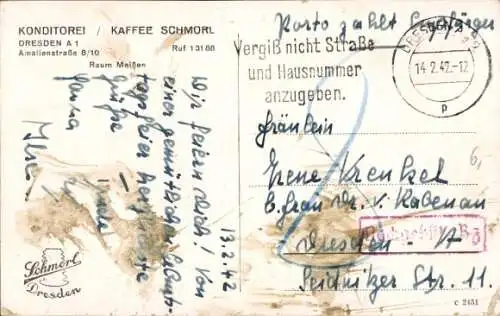 KONDITOREI / KAFFEE SCHMORL
DRESDEN A 1
Amalienstraße 8/10
Ruf 13188
Raum Meißen
Wir feiern Dich! Von
einer gemütlichen
tagsfeier herzlichste
Grüße
13.2.42
Schmorl
Dresden
Porto zahlt Empfänger
Vergiß nicht Straße
und Hausnummer
anzugeben.
DRESDEN
14.2.42-12
p
Fräulein
Irene Krenkel
b. Frau Dr. v. Kabenau
Dresden - A
Seidnitzer Str. 11.
6,
C 2451